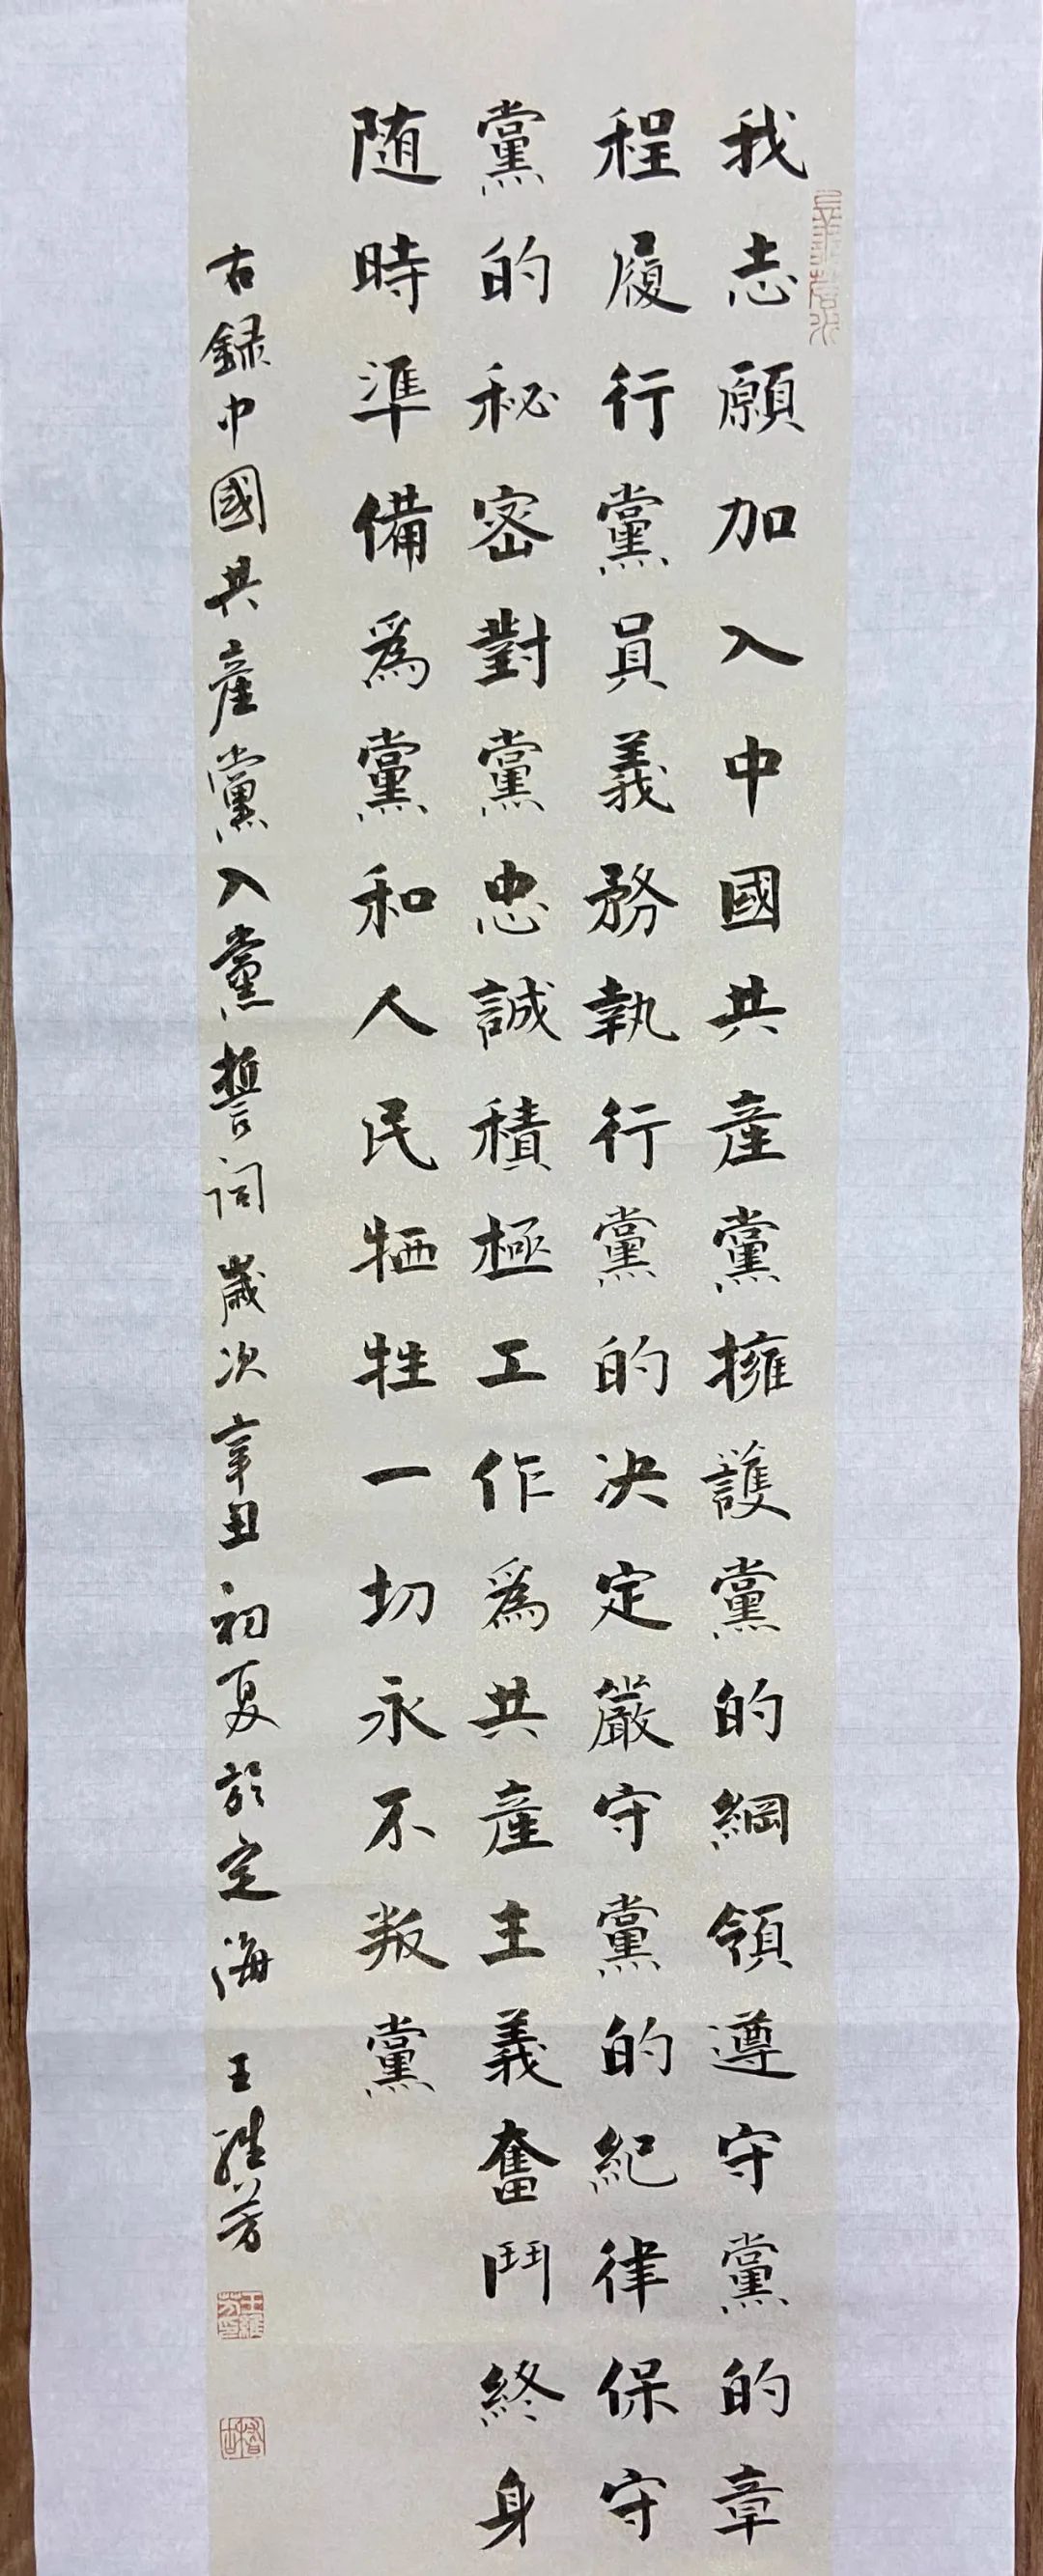 我志願加入中國共産黨擁護黨的綱領遵守黨的章
程履行黨員義務執行黨的决定嚴守黨的紀律保守
黨的秘密對黨忠誠積極工作爲共産主義奮鬥終身
随時準備爲黨和人民牺牲一切永不叛黨
右録中國共産黨入黨誓詞歲次辛丑初夏於定海王維芳